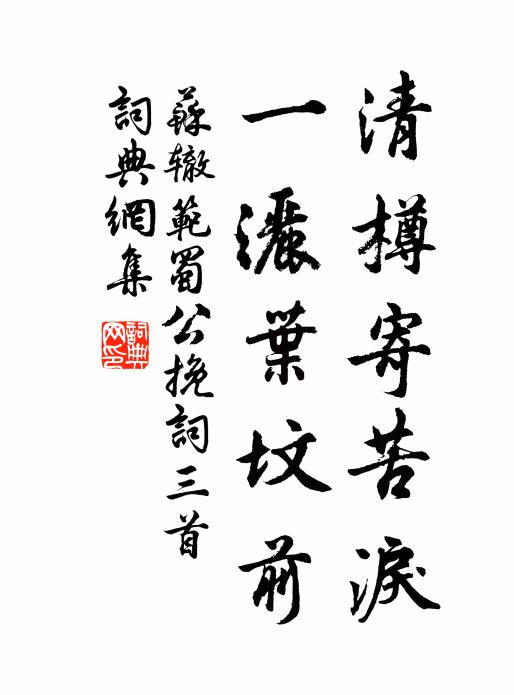 清樽寄苦淚
一灑葉墳前
蘇辙範蜀公挽詞三首
詞典網集
詞典網印